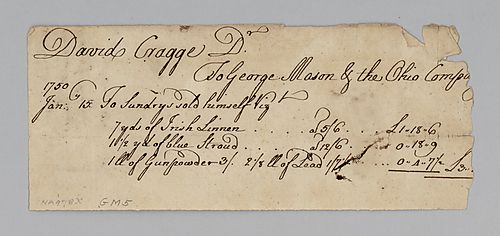 David Cragge Dr.
To George Mason & the Ohio Compa
1750
Jany. 15 To Sundrys sold himself Vizt
7 yds of Irish Linnen . . . . a 5/6 . . . £1-18-6
1 1/2 yd of blue Stroud . . . . a 12/6 . . 0-18-9
1 ll of Gunpowder 3/. 2 1/8 ll of Lead 0-4-7 1/2 £3
GM5